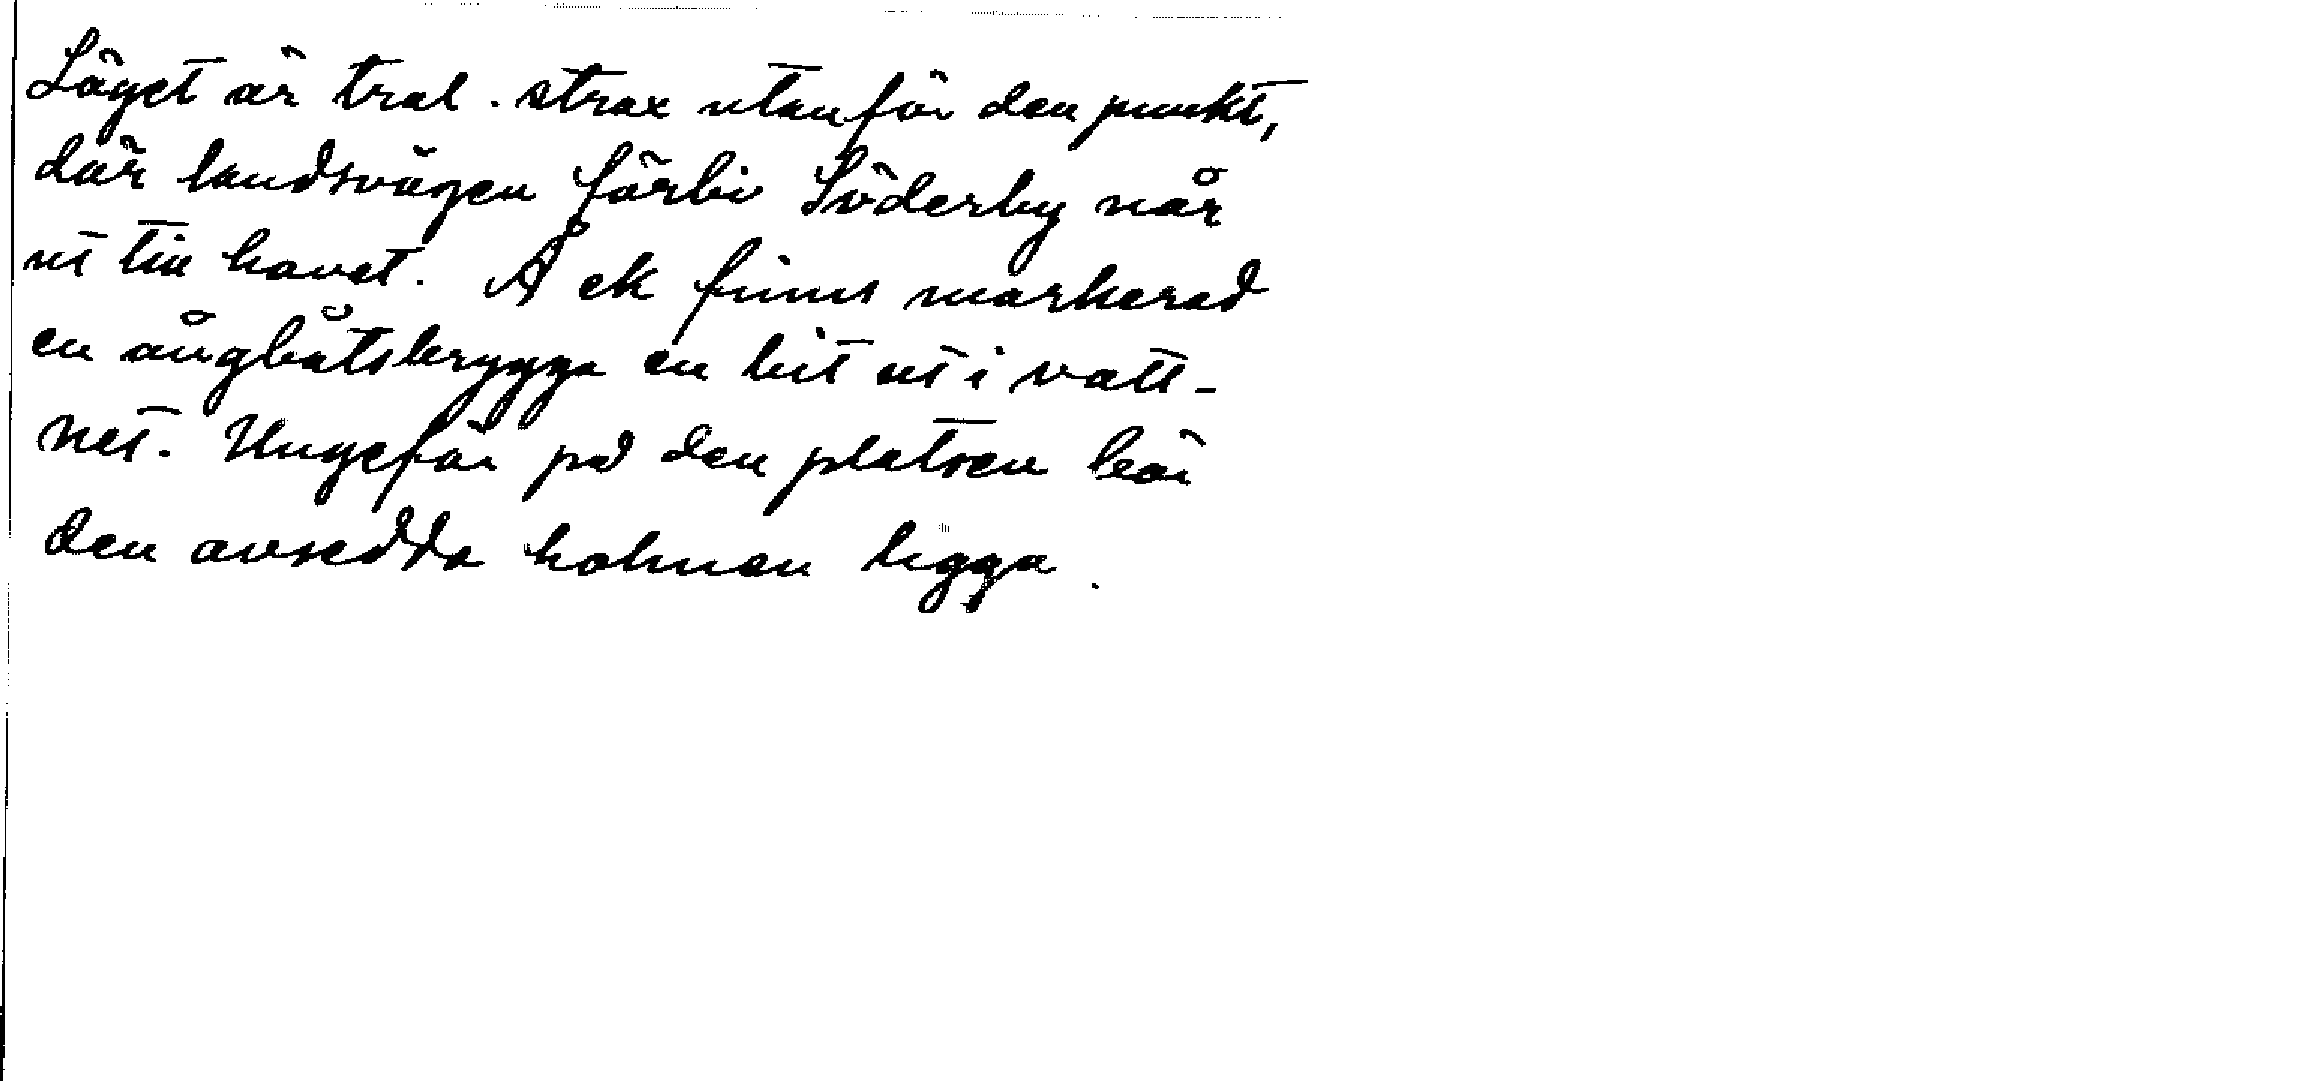 Läget är trol. strax utanför den punkt,
där landsvägen förbi Söderby når
ut till havet. Å ek finns markerad
en ångbåtsbrygga en bit ut i vatt-
net. Ungefär på den platsen bör
den avsedda holmen ligga.